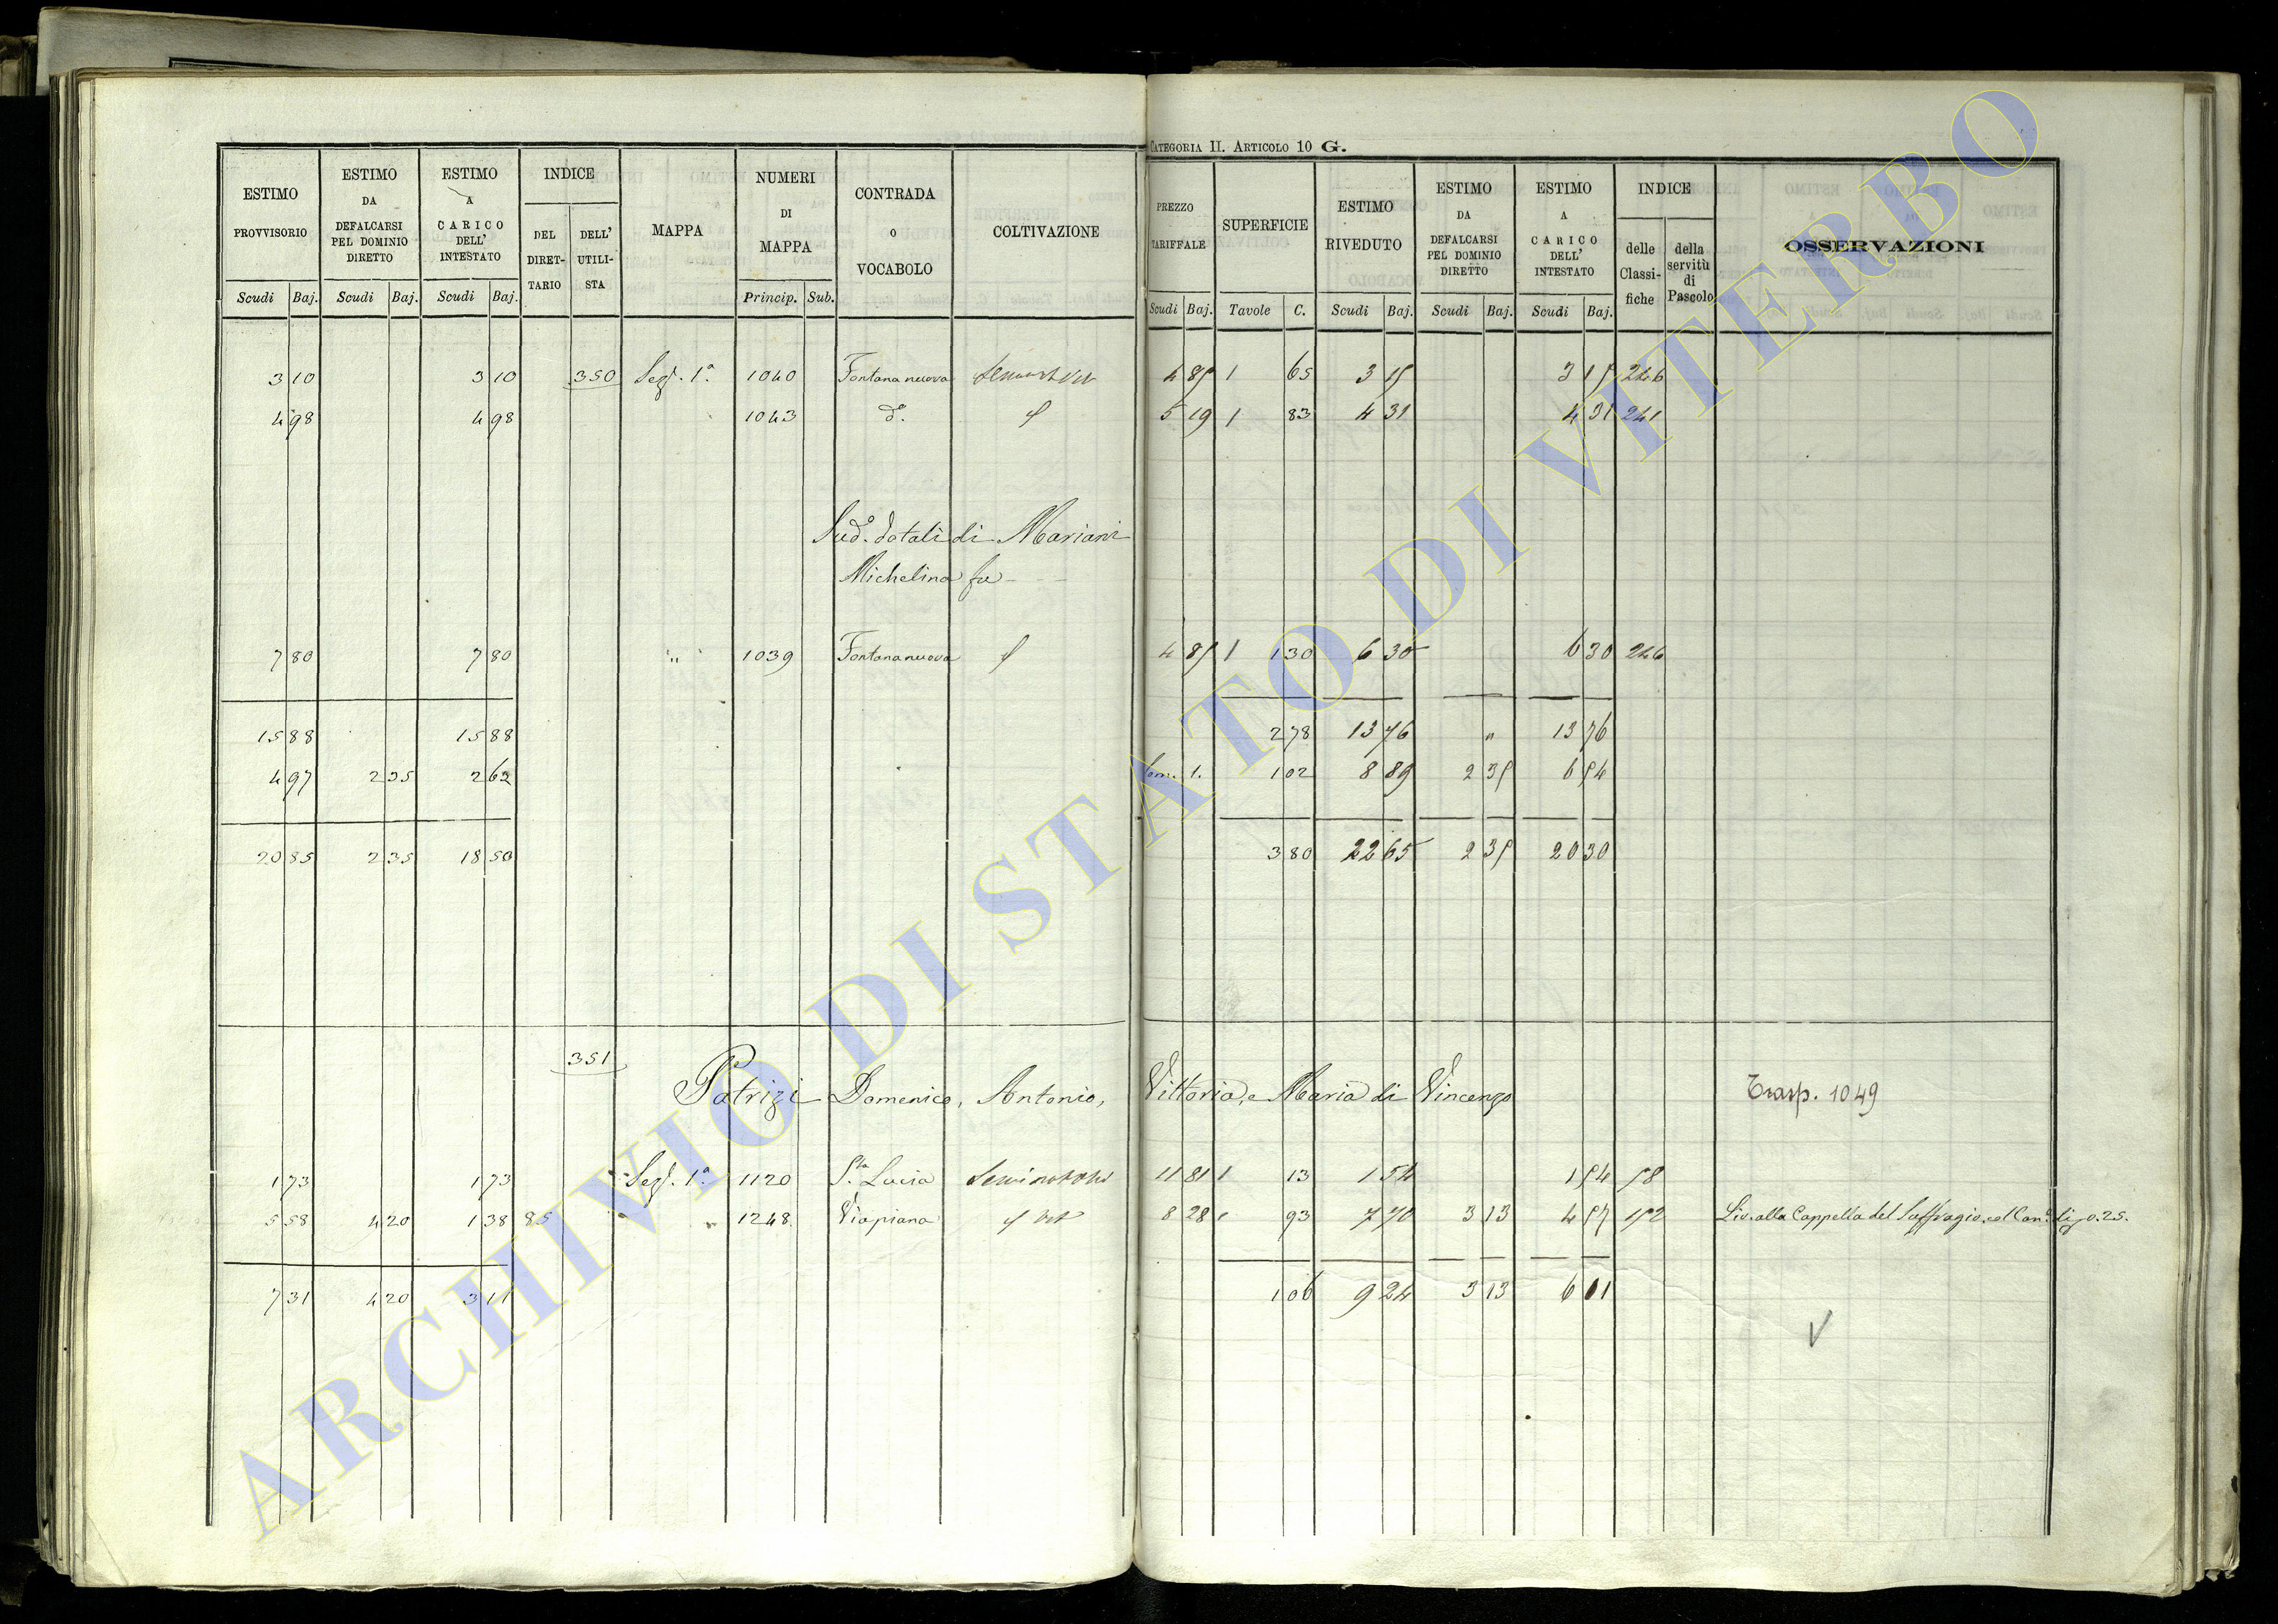 CATEGORIA II. ARTICOLO 10 G.
ESTIMO PROVVISORIO Scudi Baj.
ESTIMO DA DEFALCARSI PEL DOMINIO DIRETTO Scudi Baj.
ESTIMO A CARICO DELL' INTESTATO Scudi Baj.
INDICE DEL DIRET-TARIO DELL' UTILI-STA
MAPPA
NUMERI DI MAPPA Princip. Sub.
CONTRADA O VOCABOLO
COLTIVAZIONE
PREZZO TARIFFALE Scudi Baj.
SUPERFICIE Tavole C.
ESTIMO RIVEDUTO Scudi Baj.
ESTIMO DA DEFALCARSI PEL DOMINIO DIRETTO Scudi Baj.
ESTIMO A CARICO DELL' INTESTATO Scudi Baj.
INDICE delle Classi-fiche della servitù di Pascolo
OSSERVAZIONI
3 10 3 10 350 Segt. 1ª 1040 Fontana nuova 4 85 1 65 3 15 3 15 246
4 98 4 98 1043 dº. 5 19 1 83 4 31 4 31 241
Sudº. dotali di Mariani
Michelina fu - -
7 80 7 80 " 1039 Fontana nuova 4 85 1 1 30 6 30 6 30 246
15 88 15 88 2 78 13 76 " 13 76
4 97 2 35 2 62 1. 1 02 8 89 2 35 6 54
20 85 2 35 18 50 3 80 22 65 2 35 20 30
351
Patrizi Domenico, Antonio, Vittoria, e Maria di Vincenzo Trasp. 1049
1 73 1 73 Segt. 1ª 1120 Sta. Lucia 11 81 1 13 1 54 1 54 58
5 58 4 20 1 38 85 " 1248 Viapiana 8 28 1 93 7 70 3 13 4 57 152 Liv. alla Cappella del Suffragio, col Cane. di 0.25.
7 31 4 20 3 11 1 06 9 24 3 13 6 11
ARCHIVIO DI STATO DI VITERBO